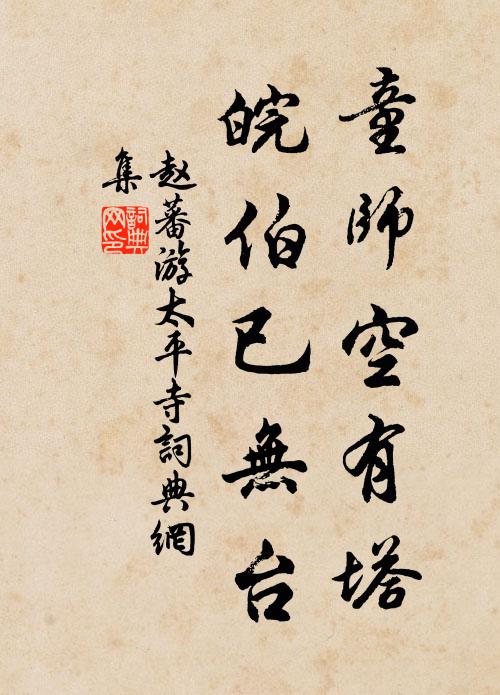 童師空有塔
皖伯已無台
赵蕃游太平寺詞典網
集
詞典網印